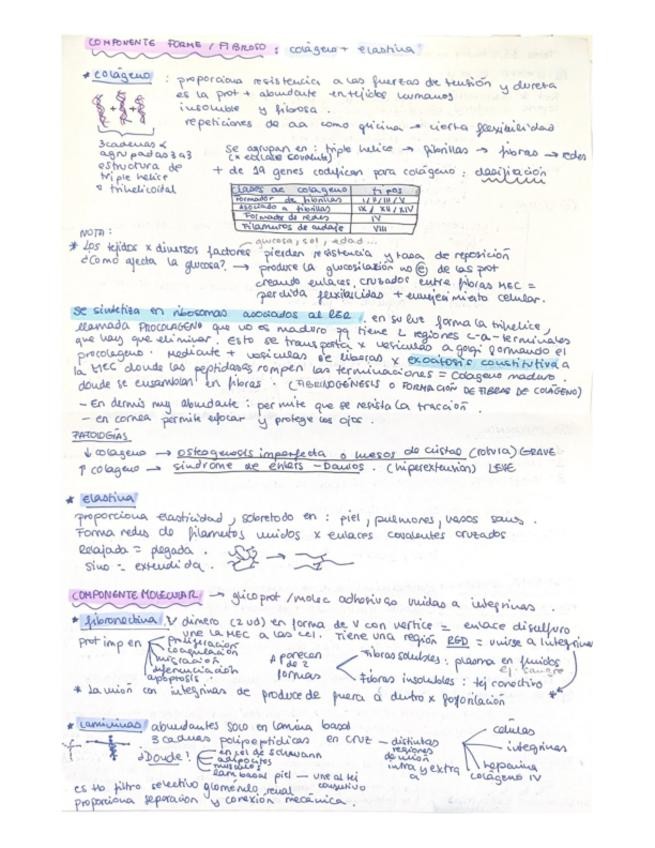 COMPONENTE FORME / FIBROSO : colágeno + elastina
* colágeno : proporciona resistencia a las fuerzas de tensión y dureta
es la prot + abundante en tejidos humanos
insoluble y fibrosa.
repeticiones de aa como glicina → cierta flexibilidad
3 cadenas α
agrupadas 3 a 3
estructura de
triple helice
o trihelicoidal
se agrupan en : triple helice → fibrillas → fibras → redes
(x enlace covalente)
+ de 19 genes codifican para colágeno : clasificación
clases de colágeno tipos
Formador de fibrillas I/II/III/V
Asociado a fibrillas IX/XII/XIV
Formador de redes IV
Filamentos de anclaje VII
NOTA :
glucosa, sol, edad...
* Los tejidos x diversos factores pierden resistencia y tasa de reposición
¿Como afecta la glucosa? → produce la glucosilación no e de las prot
creando enlaces cruzados entre fibras MEC =
perdida flexibilidad + envejecimiento celular.
se sintetiza en ribosomas asociados al RER. en su luz forma la trihelice,
llamada PROCOLAGENO que no es maduro pq tiene 2 regiones c-a-terminales
que hay que eliminar. Esto se transporta x vesiculas a golgi formando el
procolageno. Mediante + vesiculas se liberas x exocitosis constitutiva a
la MEC donde las peptidasas rompen las terminaciones = colágeno maduro.
donde se ensamblan en fibras. (FIBRILOGÉNESIS O FORMACIÓN DE FIBRAS DE COLÁGENO)
- En dermis muy abundante : permite que se resista la tracción.
- en cornea permite enfocar y protege los ojos.
PATOLOGÍAS
↓ colageno → osteogenesis imperfecta o huesos de cristal (rotura) GRAVE
↑ colageno → sindrome de enlers - Danlos. (hiperextensión) LEVE
* elastina
proporciona elasticidad, sobretodo en : piel, pulmones, vasos sang.
Forma redes de filamentos unidos x enlaces covalentes cruzados
Relajada = plegada.
sino = extendida.
COMPONENTE MOLECULAR → glicoprot / molec adhesivas unidas a integrinas.
* fibronectina V dimero (2 ud) en forma de V con vertice = enlace disulfuro
une la MEC a las cel. Tiene una región RGD = unirse a integrinas
Prot imp en
proliferación
coagulación
migración
diferenciación
apoptosis.
Aparecen
de 2
formas
Fibras solubles : plasma en fluidos
ej. sangre
Fibras insolubles : tej conectivo
* La unión con integrinas de produce de fuera a dentro x fosforilación *
* Lamininas abundantes solo en lamina basal
3 cadenas polipeptidicas en cruz - distintas
regiones
de unión
intra y extra
células
integrinas
heparina
colágeno IV
¿Donde?
en cel de schwann
adipocitos
musculos
lam basal piel - une al tej
conectivo
es tb filtro selectivo glomérulo renal
proporciona separación y conexión mecánica.